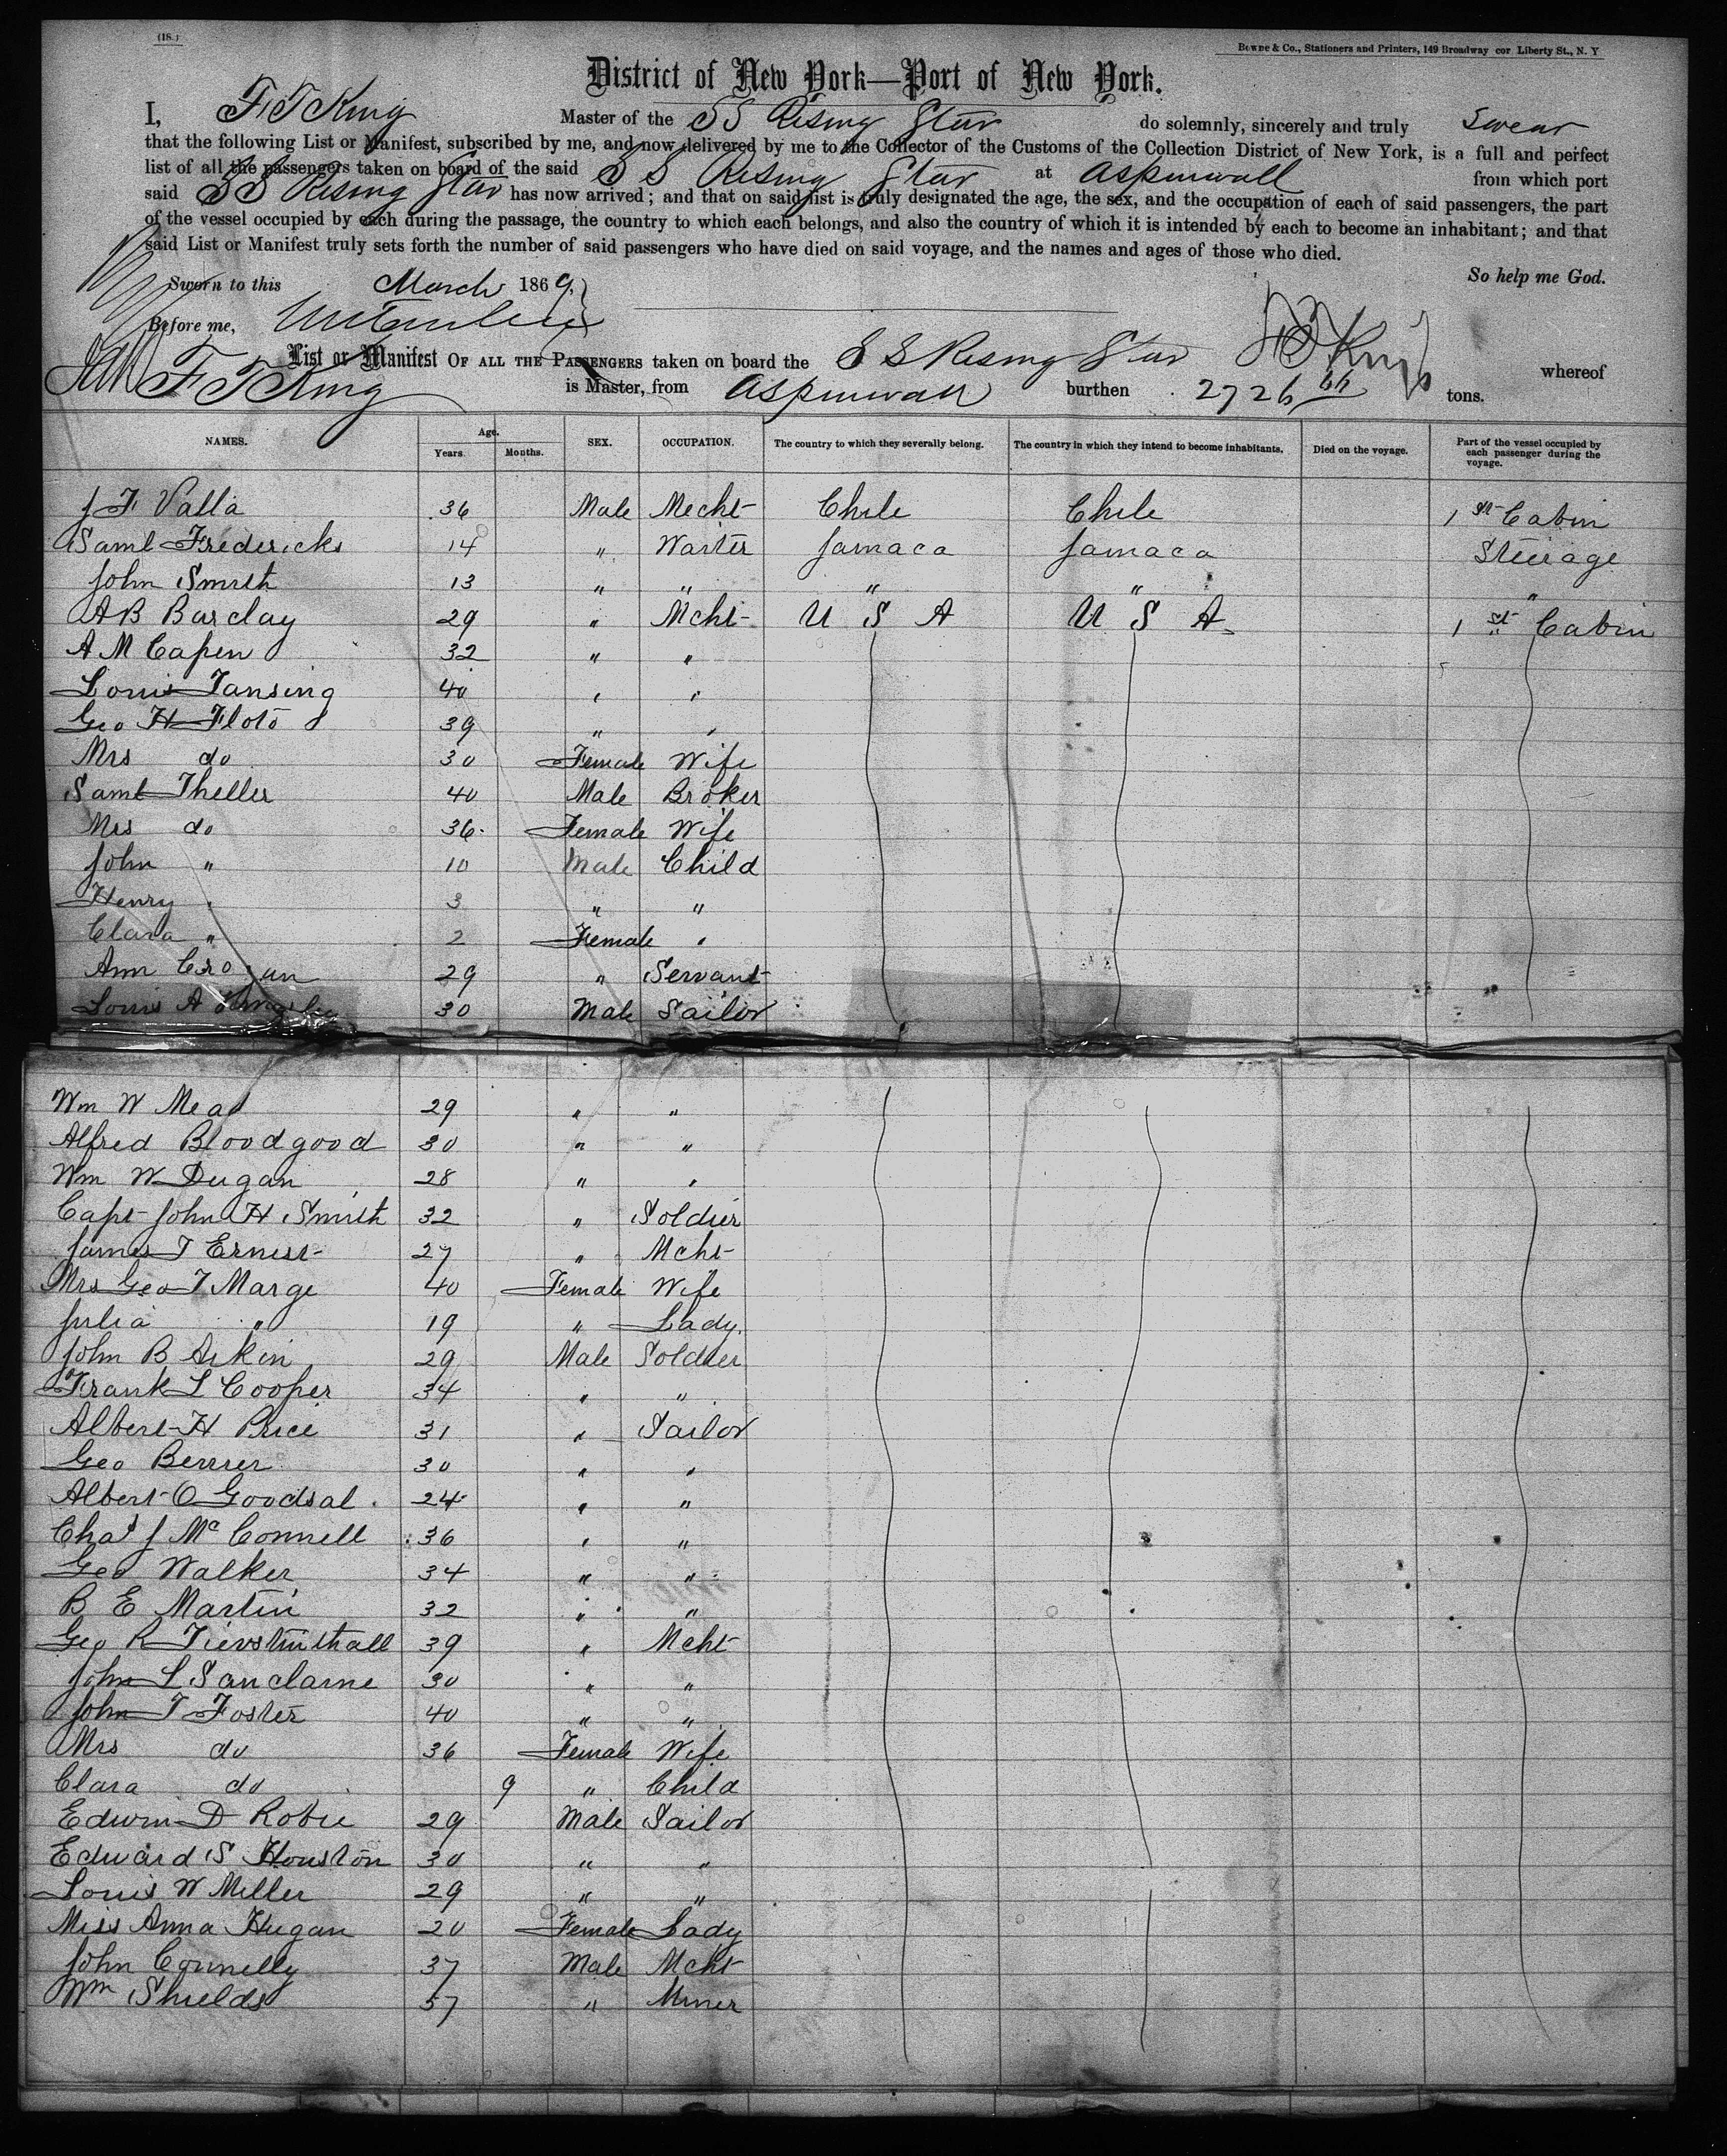 Bowne & Co., Stationers and Printers, 149 Broadway cor Liberty St., N. Y
District of New York—Port of New York.
I, F T King Master of the SS Rising Star do solemnly, sincerely and truly swear
that the following List or Manifest, subscribed by me, and now delivered by me to the Collector of the Customs of the Collection District of New York, is a full and perfect
list of all the passengers taken on board of the said S S Rising Star at Aspinwall from which port
said SS Rising Star has now arrived; and that on said list is truly designated the age, the sex, and the occupation of each of said passengers, the part
of the vessel occupied by each during the passage, the country to which each belongs, and also the country of which it is intended by each to become an inhabitant; and that
said List or Manifest truly sets forth the number of said passengers who have died on said voyage, and the names and ages of those who died.
Sworn to this March 1869, So help me God.
Before me,
F T King
List or Manifest OF ALL THE PASSENGERS taken on board the S S Rising Star whereof
F T King is Master, from Aspinwall burthen 2726 tons.
NAMES. Age. Years. Months. SEX. OCCUPATION. The country to which they severally belong. The country in which they intend to become inhabitants. Died on the voyage. Part of the vessel occupied by each passenger during the voyage.
J F Valla 36 Male Mecht Chile Chile 1st Cabin
Saml Fredericks 14 " Waiter Jamaca Jamaca Steerage
John Smith 13 " " " " "
A B Barclay 29 " Mcht U S A U S A 1st Cabin
A M Capen 32 " "
Louis Tansing 40 " "
Geo H Floto 39 " "
Mrs do 30 Female Wife
Saml Theller 40 Male Broker
Mrs do 36 Female Wife
John " 10 Male Child
Henry " 3 " "
Clara " 2 Female "
Ann 29 " Servant
Louis A 30 Male Sailor
Wm W Mead 29 " "
Alfred Bloodgood 30 " "
Wm W Dugan 28 " "
Capt John H Smith 32 " Soldier
James T Ernest 27 " Mcht
Mrs Geo T Marge 40 Female Wife
Julia " 19 " Lady
John B Aikin 29 Male Soldier
Frank L Cooper 34 " "
Albert H Price 31 " Sailor
Geo 30 " "
Albert O Goodsal 24 " "
Chas J McConnell 36 " "
Geo Walker 34 " "
B E Martin 32 " "
Geo R 39 " Mcht
John L Sanclarne 30 " "
John T Foster 40 " "
Mrs do 36 Female Wife
Clara do 9 " Child
Edwin D Robie 29 Male Sailor
Edward S Houston 30 " "
Louis W Miller 29 " "
Miss Anna Hugan 20 Female Lady
John Connelly 37 Male Mcht
Wm Shields 57 " Miner